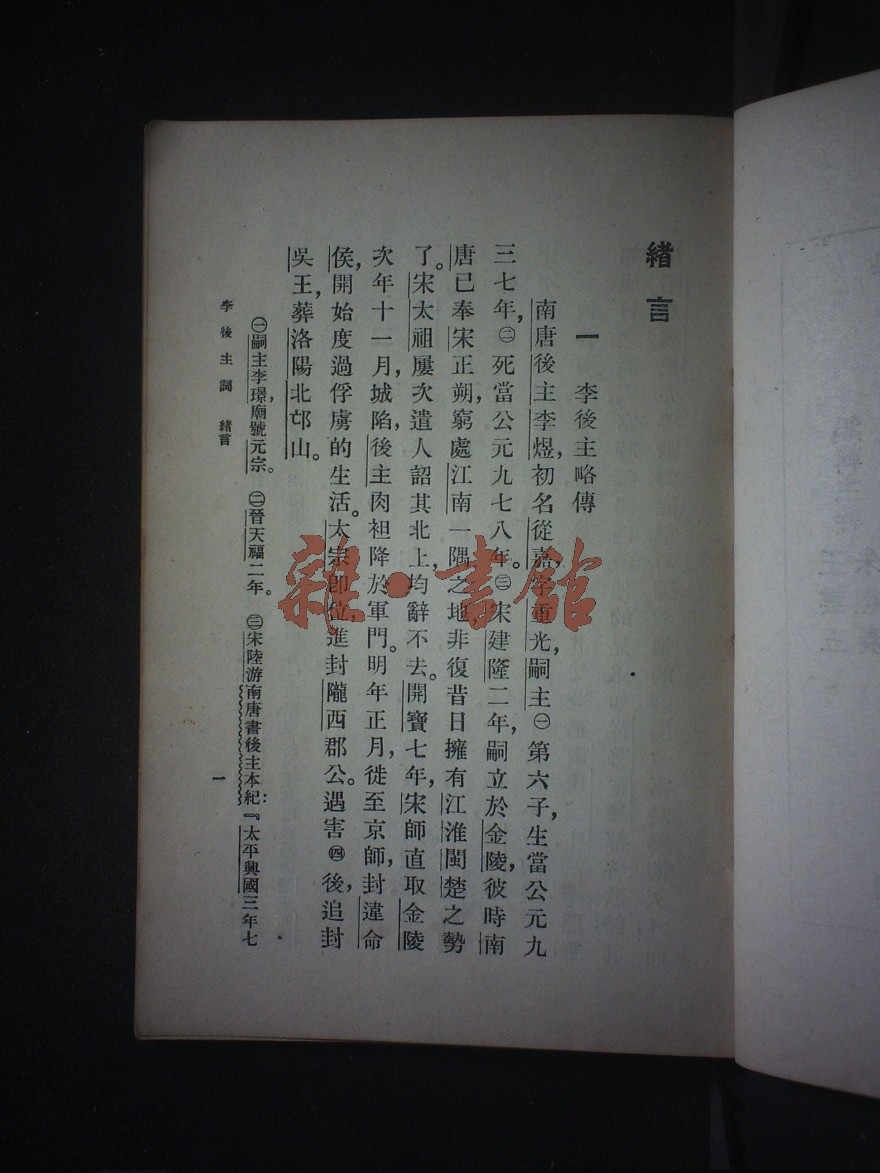 緒言
一　李後主略傳
南唐後主李煜，初名從嘉，字重光，嗣主㊀第六子，生當公元九
三七年，㊁死當公元九七八年。㊂宋建隆二年，嗣立於金陵，彼時南
唐已奉宋正朔，窮處江南一隅之地，非復昔日擁有江淮閩楚之勢
了。宋太祖屢次遣人詔其北上，均辭不去。開寶七年，宋師直取金陵
次年十一月，城陷，後主肉袒降於軍門。明年正月，徙至京師，封違命
侯，開始度過俘虜的生活。太宗即位，進封隴西郡公。遇害㊃後，追封
吳王，葬洛陽北邙山。
㊀嗣主李璟，廟號元宗。　㊁晉天福二年。　㊂宋陸游南唐書後主本紀：『太平興國三年七
李後主詞　緒言
一
雜·書館